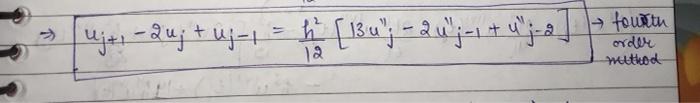 ⇒ u_{j+1} - 2u_j + u_{j-1} = h²/12 [13u''_j - 2u''_{j-1} + u''_{j-2}] → fourth
order
method